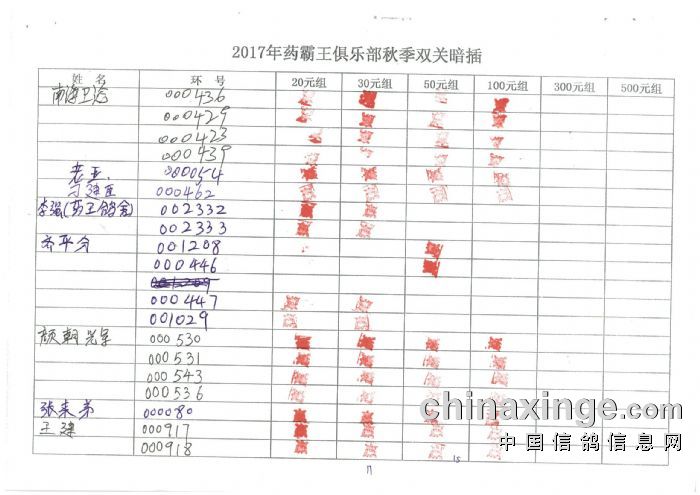 2017年药霸王俱乐部秋季双关暗插
姓名 环号 20元组 30元组 50元组 100元组 300元组 500元组
000436
000429
000423
000439
老王 000054
000462
李强(药王鸽舍) 002332
002333
001208
000446
000447
001029
000530
000531
000543
000536
张来弟 000080
000917
000918
chinaxinge.com
中国信鸽信息网
11
15